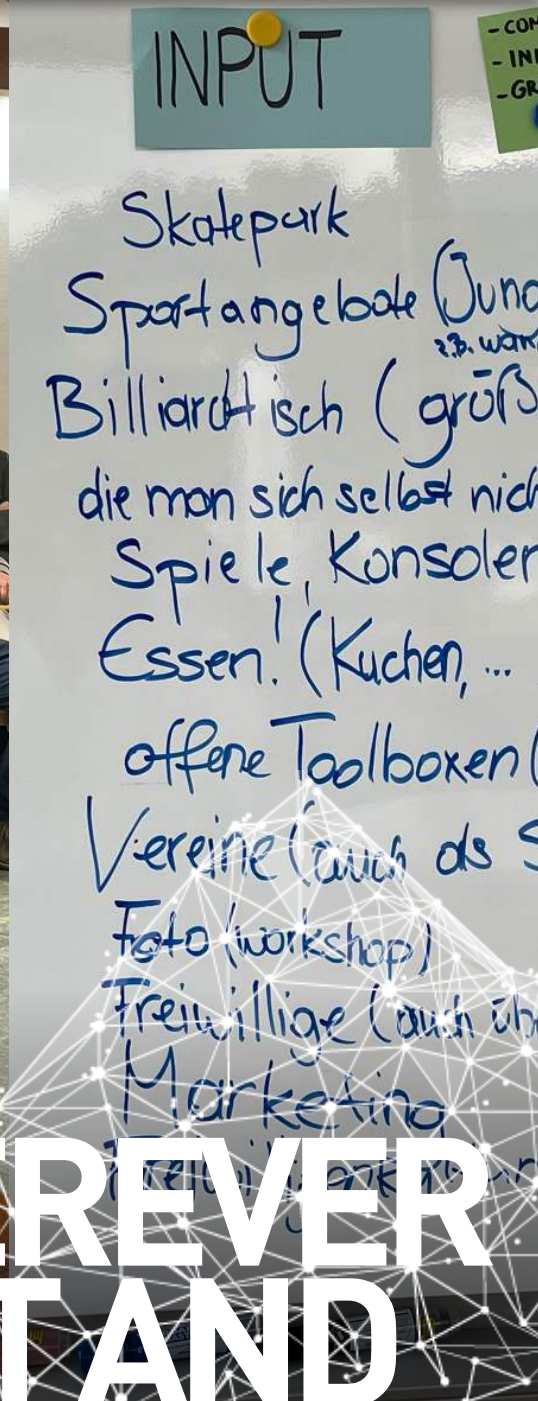 INPUT
- COM
- INF
- GR
Skatepark
Sportangebote (Jung
z.B. wöm
Billiardtisch (größ
die man sich selbst nich
Spiele, Konsolen
Essen! (Kuchen, ...
offene Toolboxen (
Vereine (auch als S
Foto (workshop)
Freiwillige (auch üb
Marketing
EREVER
T AND